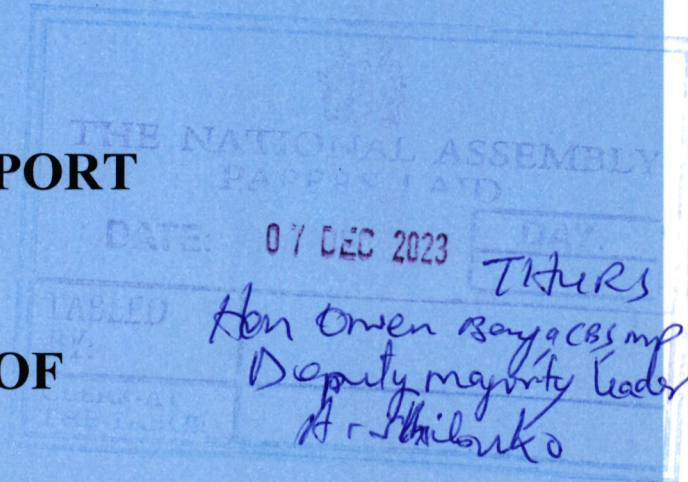 THE NATIONAL ASSEMBLY
PAPERS LAID
PORT
DATE: 07 DEC 2023 DAY:
THURS
TABLED
BY:
Hon Owen Baya CBS MP
Deputy majority Leader
OF
CLERK-AT
THE-TABLE: